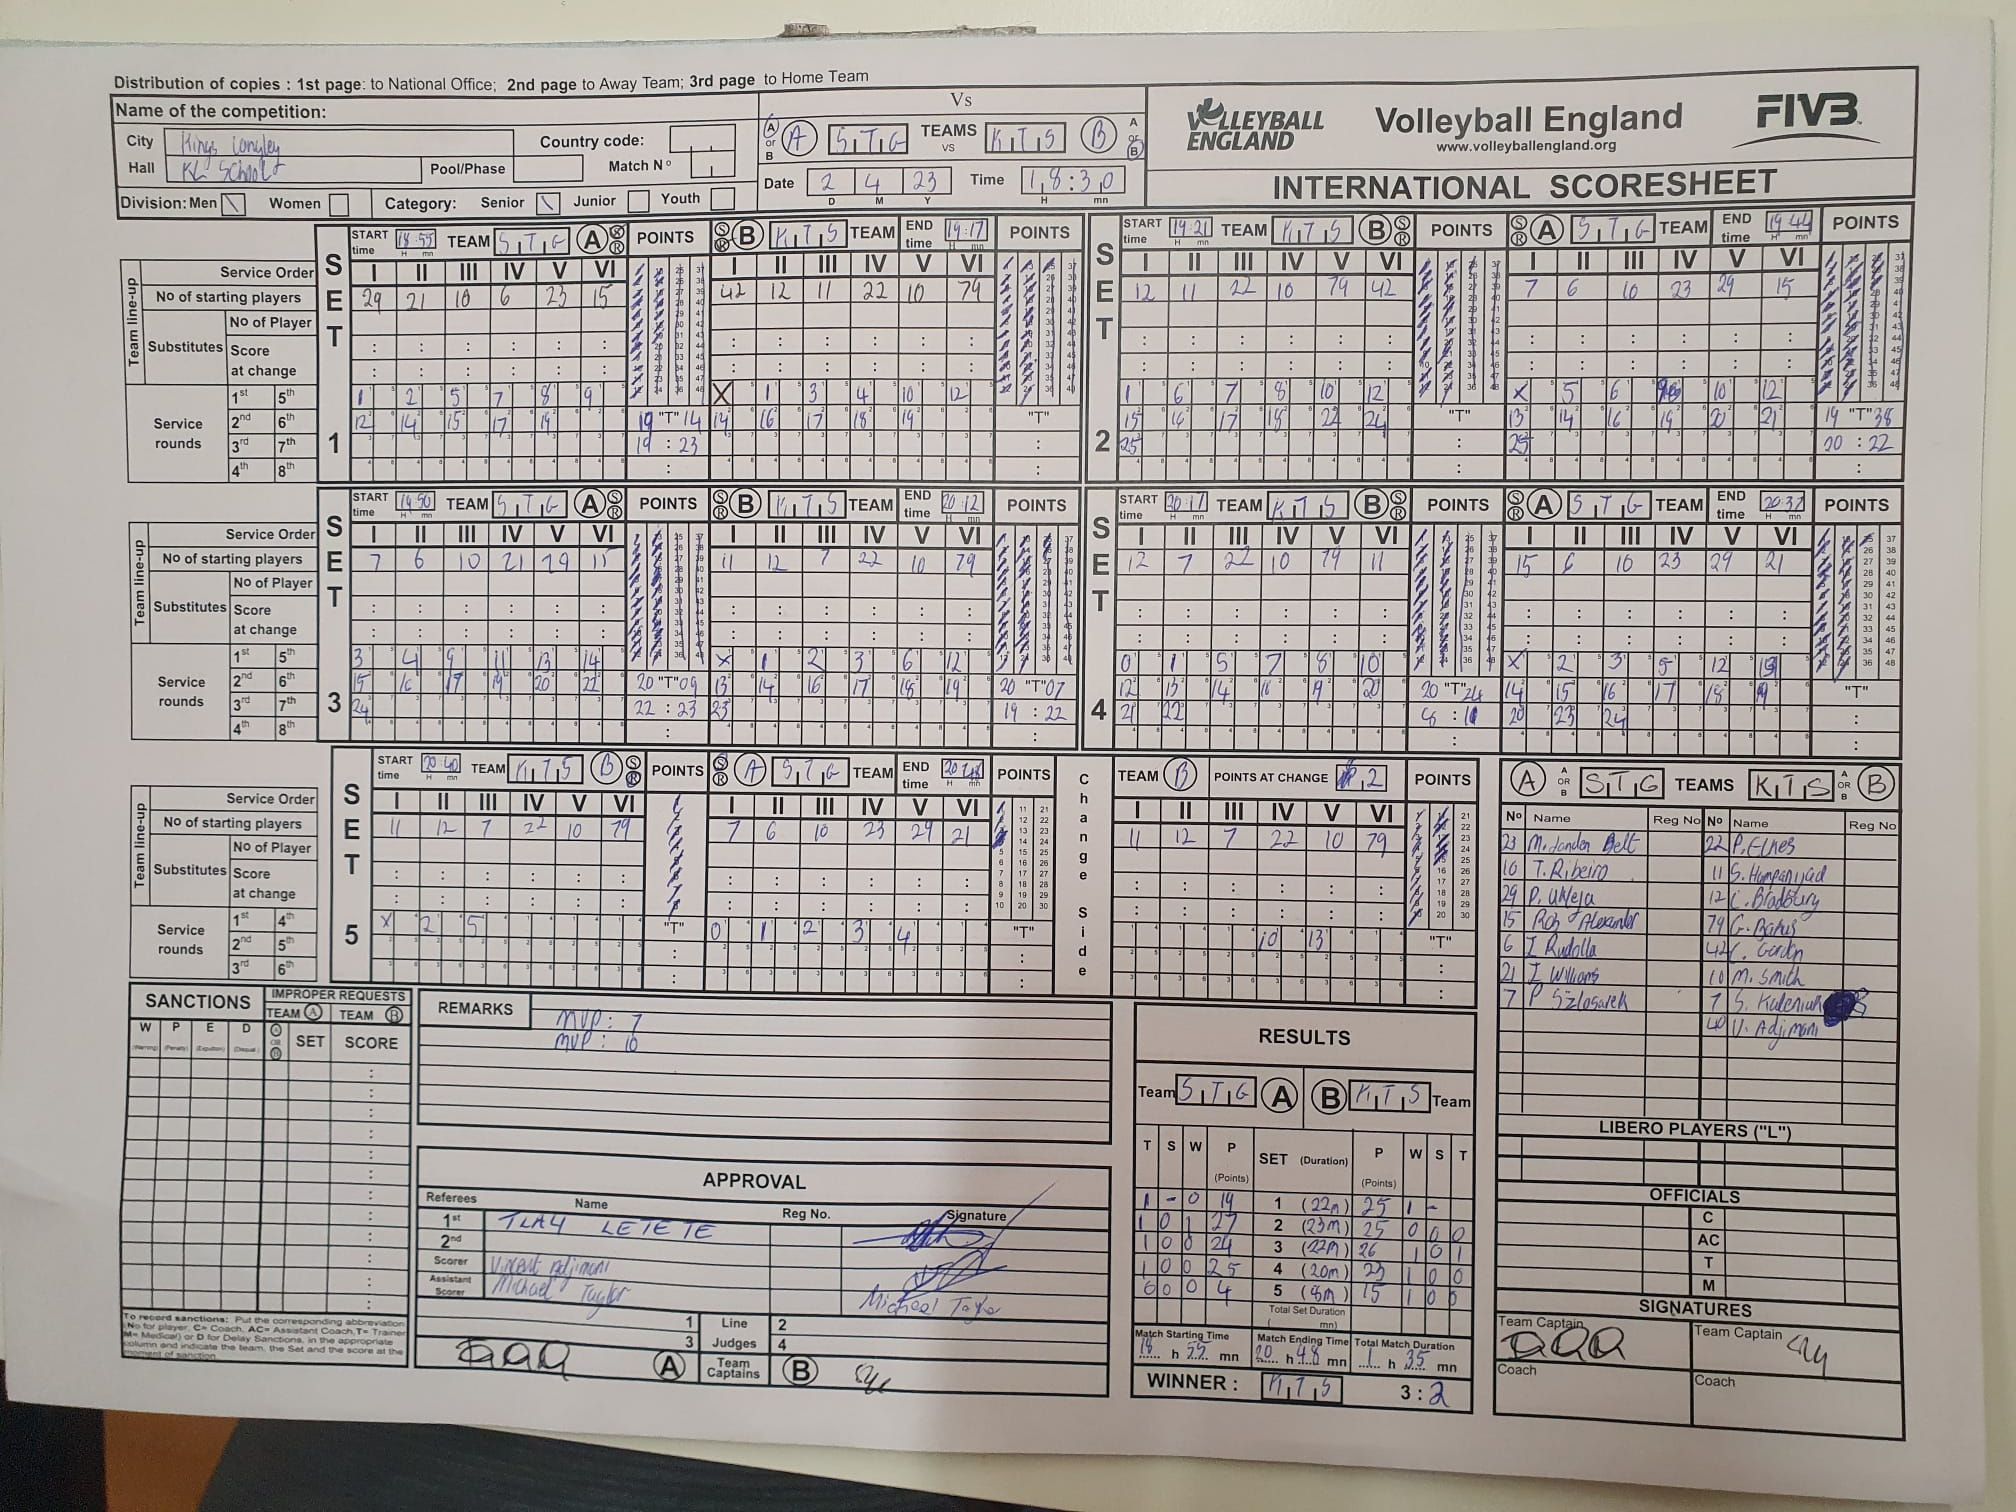 Distribution of copies : 1st page: to National Office; 2nd page to Away Team; 3rd page to Home Team
Name of the competition:
Vs
City Kings Langley Country code:
Hall KL School Pool/Phase Match Nº
A or B A S T G TEAMS VS K T S B A or B
Date 2 4 23 Time 18:30
D M Y H mn
Division: Men Women Category: Senior Junior Youth
VOLLEYBALL ENGLAND
Volleyball England
www.volleyballengland.org
FIVB
INTERNATIONAL SCORESHEET
SET 1
START time 18:55 TEAM S T G A S R POINTS S R B K T S TEAM END time 19:17 POINTS
Service Order I II III IV V VI I II III IV V VI
Team line-up
No of starting players 29 21 10 6 23 15 42 12 11 22 10 79
Substitutes
No of Player
Score at change
Service rounds
1st 5th 1 2 5 7 8 9 X 1 3 4 10 12
2nd 6th 12 14 15 17 19 19 "T" 14 14 16 17 18 19 "T"
3rd 7th 19 : 23
4th 8th
SET 2
START time 19:21 TEAM K T S B S R POINTS S R A S T G TEAM END time 19:44 POINTS
I II III IV V VI I II III IV V VI
12 11 22 10 79 42 7 6 10 23 29 15
1 6 7 8 10 12 X 5 6 10 12
15 16 17 18 22 24 "T" 13 14 16 19 20 21 19 "T" 38
25 25 20 : 22
SET 3
START time 19:50 TEAM S T G A S R POINTS S R B K T S TEAM END time 20:12 POINTS
Service Order I II III IV V VI I II III IV V VI
Team line-up
No of starting players 7 6 10 21 29 15 11 12 7 22 10 79
Substitutes
No of Player
Score at change
Service rounds
1st 5th 3 4 9 11 13 14 X 1 2 3 6 12
2nd 6th 15 16 17 19 20 22 20 "T" 09 13 14 16 17 18 19 20 "T" 07
3rd 7th 24 22 : 23 23 19 : 22
4th 8th
SET 4
START time 20:17 TEAM K T S B S R POINTS S R A S T G TEAM END time 20:37 POINTS
I II III IV V VI I II III IV V VI
12 7 22 10 79 11 15 6 10 23 29 21
0 1 5 7 8 10 X 2 3 5 12 13
12 13 14 16 19 20 20 "T" 24 14 15 16 17 18 19 "T"
21 22 20 23 24
SET 5
START time 20:40 TEAM K T S B S R POINTS S R A S T G TEAM END time 20:48 POINTS
Service Order I II III IV V VI I II III IV V VI
Team line-up
No of starting players 11 12 7 22 10 79 7 6 10 23 29 21
Substitutes
No of Player
Score at change
Service rounds
1st 4th X 2 5 "T" 0 1 2 3 4 "T"
2nd 5th
3rd 6th
Change Side
TEAM B POINTS AT CHANGE 2 POINTS
I II III IV V VI
11 12 7 22 10 79
10 13 "T"
A A OR B S T G TEAMS K T S A OR B B
Nº Name Reg No Nº Name Reg No
23 M. Janden Belt 22 P. Elkes
10 T. Ribeiro 11
29 P. Ukleja 12 C. Bradbury
15 Rob Alexander 79 G. Bakus
6 I Rudolla 42 C. Gordon
21 I Williams 10 M. Smith
7 P Szlosarek 7 S.
40 V. Adjimani
LIBERO PLAYERS ("L")
OFFICIALS
C
AC
T
M
SIGNATURES
Team Captain Team Captain
Coach Coach
SANCTIONS IMPROPER REQUESTS
TEAM A TEAM B
W P E D A OR B SET SCORE
(Warning) (Penalty) (Expulsion) (Disqual.)
To record sanctions: Put the corresponding abbreviation
(No for player, C= Coach, AC= Assistant Coach, T= Trainer
M= Medical) or D for Delay Sanctions, in the appropriate
column and indicate the team, the Set and the score at the
moment of sanction
REMARKS
MVP: 7
MVP: 10
APPROVAL
Referees Name Reg No. Signature
1st TLAY LETETE
2nd
Scorer Vincent Adjimani
Assistant Scorer Michael Taylor Micheal Taylor
1 Line Judges 2
3 4
A Team Captains B
RESULTS
Team S T G A B K T S Team
T S W P (Points) SET (Duration) P (Points) W S T
1 - 0 19 1 (22m) 25 1 -
1 0 1 27 2 (23m) 25 0 0 0
1 0 0 24 3 (22m) 26 1 0 1
1 0 0 25 4 (20m) 23 1 0 0
0 0 0 4 5 (8m) 15 1 0 0
Total Set Duration
( mn)
Match Starting Time Match Ending Time Total Match Duration
18 h 55 mn 20 h 48 mn 1 h 35 mn
WINNER : K T S 3 : 2